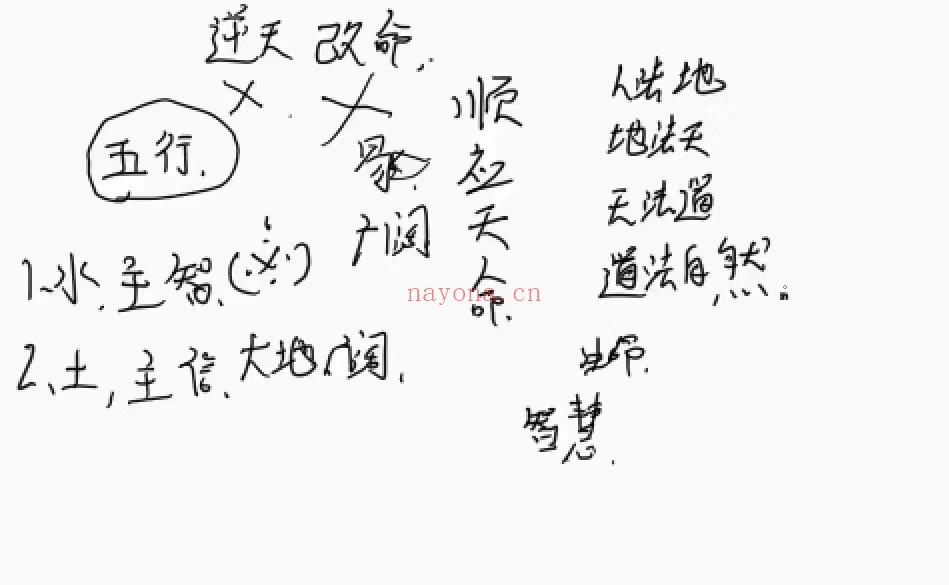 逆天 改命.
五行.
顺应天命.
人法地
地法天
天法道
道法自然.
广阔
1、水.主智.
2、土,主信.大地广阔.
生命.
智慧.
nayona.cn